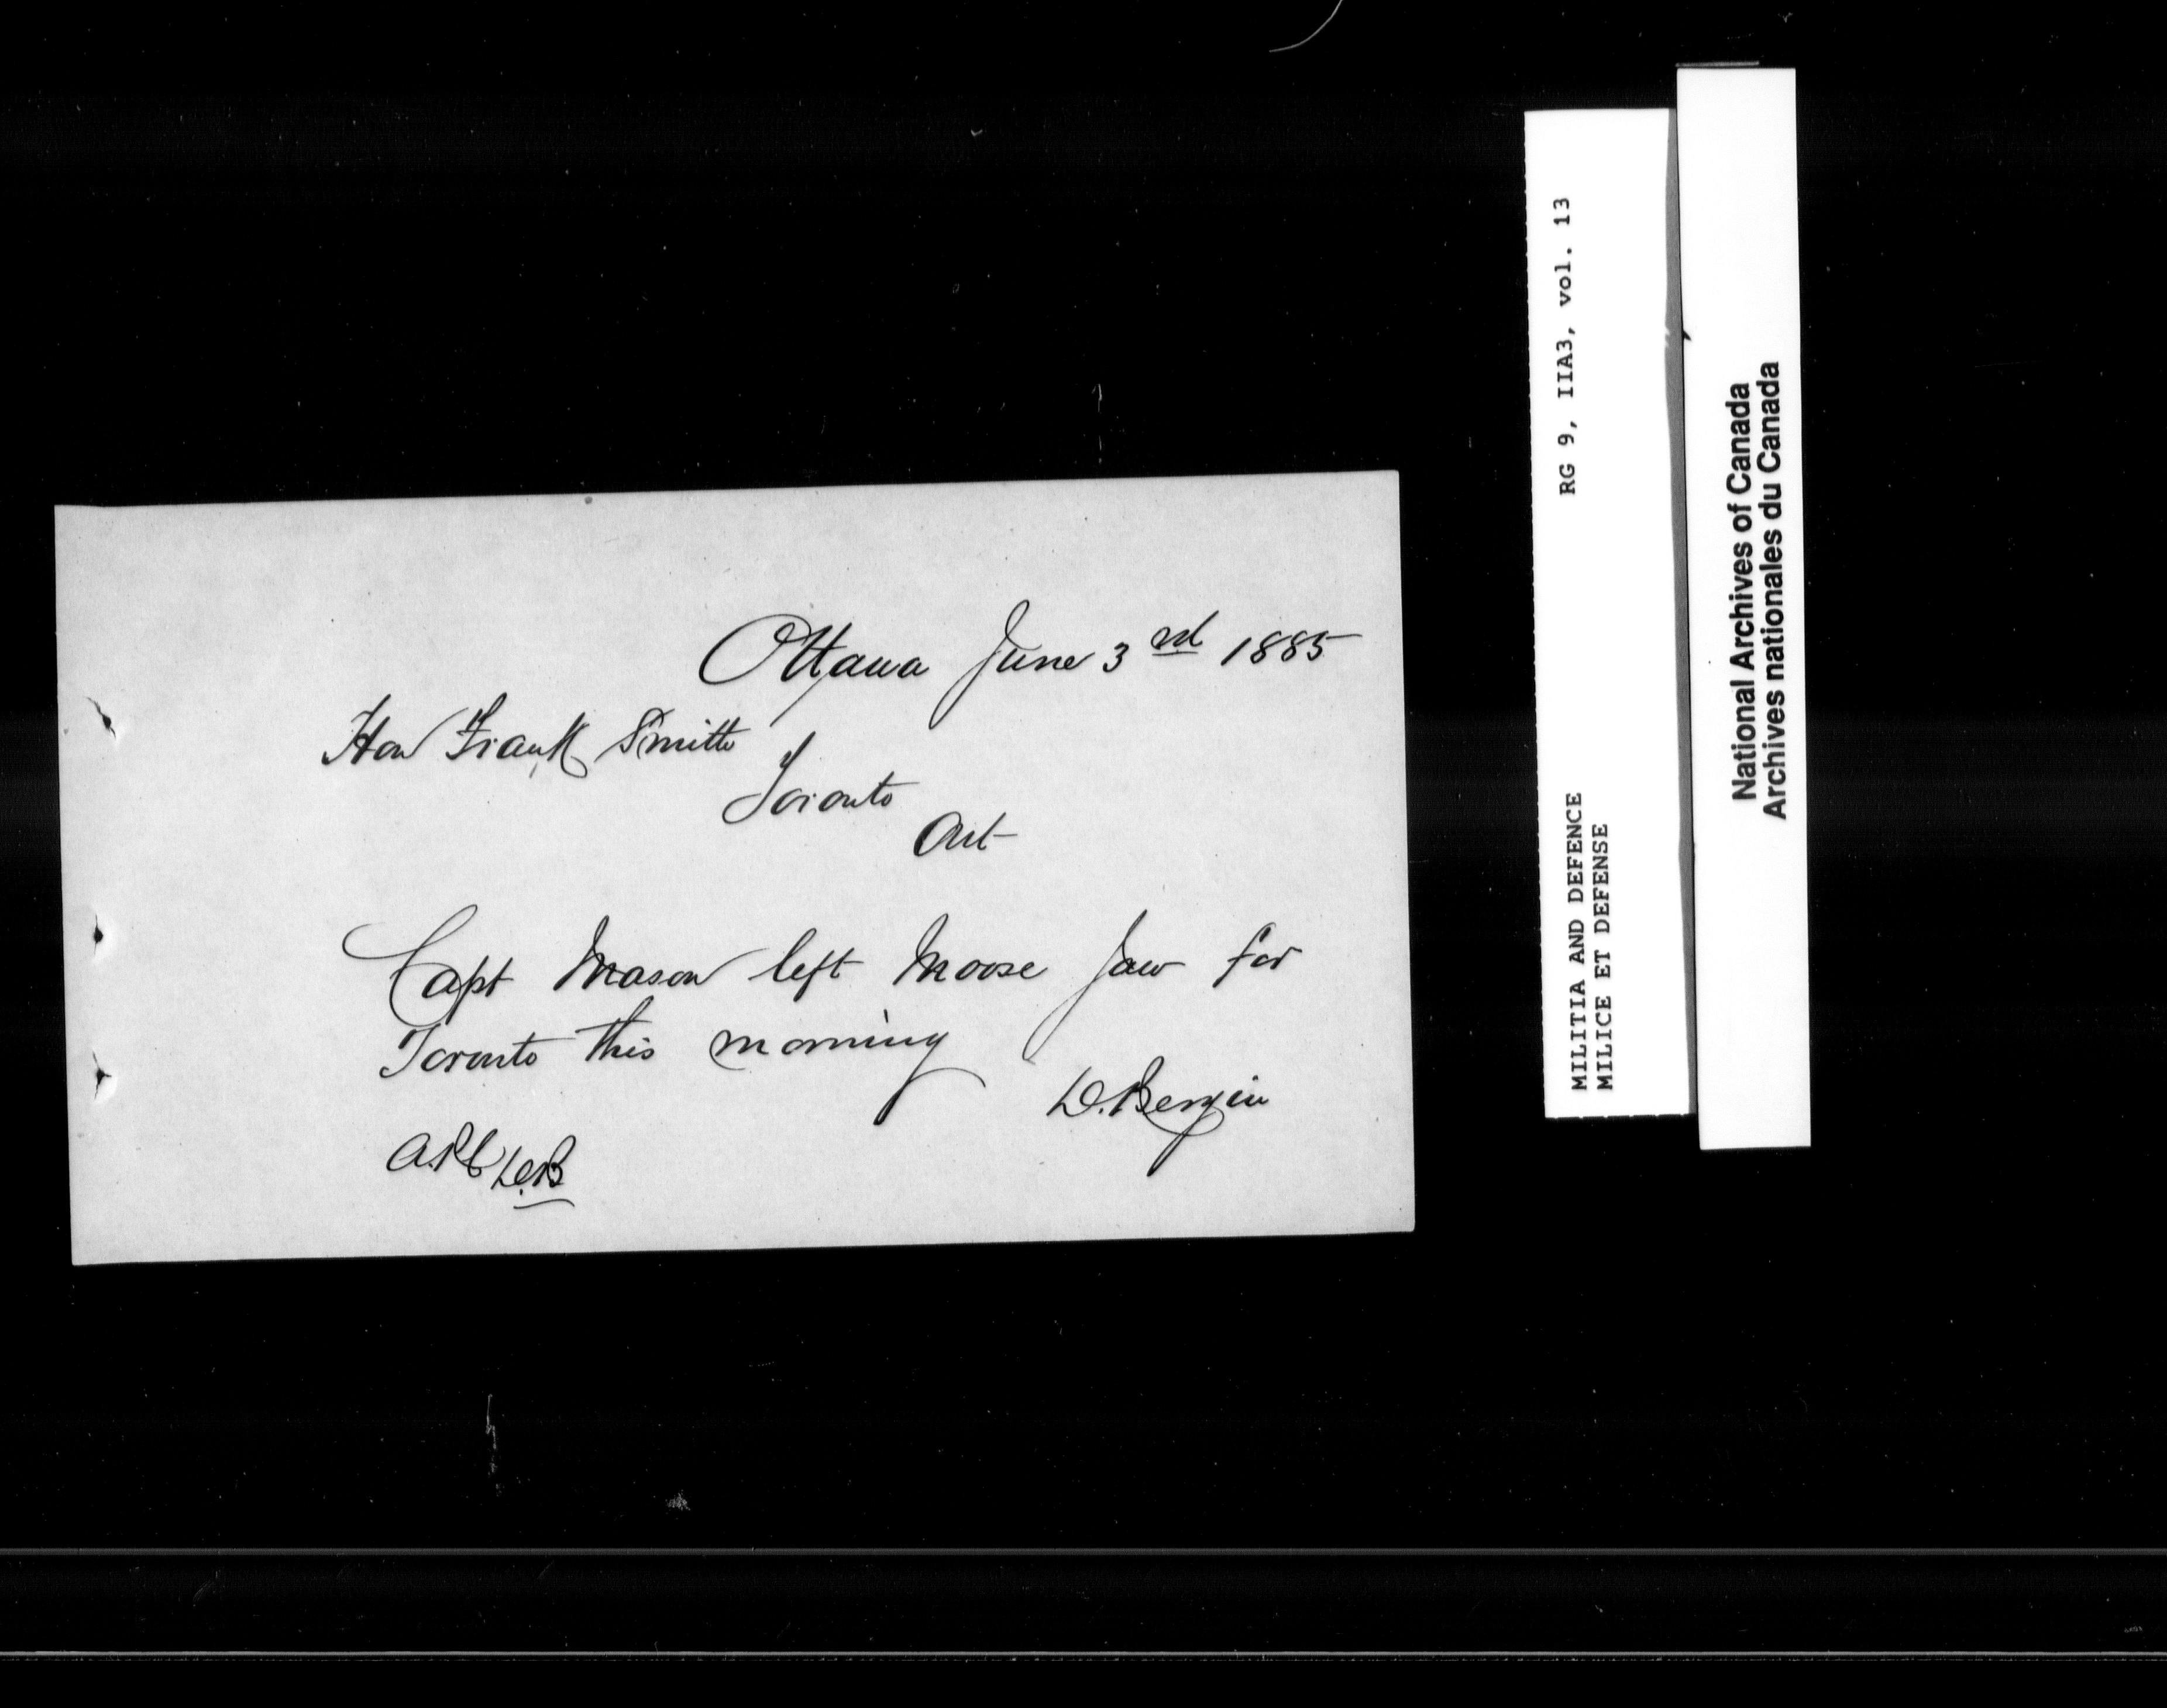 Ottawa June 3rd 1885
Hon Frank Smith
Toronto
Ont
Capt Mason left Moose Jaw for
Toronto this morning
D. Bergin
D.B
RG 9, IIA3, vol. 13
MILITIA AND DEFENCE
MILICE ET DEFENSE
National Archives of Canada
Archives nationales du Canada